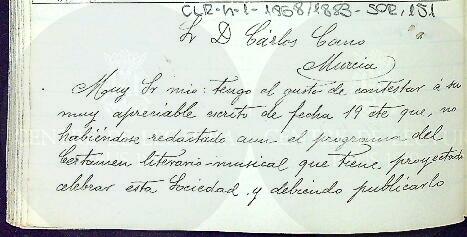 CLR-h-1-1858/1883-SPR, 151
Sr D Cárlos Cano
Murcia
Muy Sr mio: tengo el gusto de contestar á su
muy apreciable escrito de fecha 19 cte que, no
habiéndose redactado aun el programa del
Certamen literario-musical que tiene proyectado
celebrar esta Sociedad y debiendo publicarlo